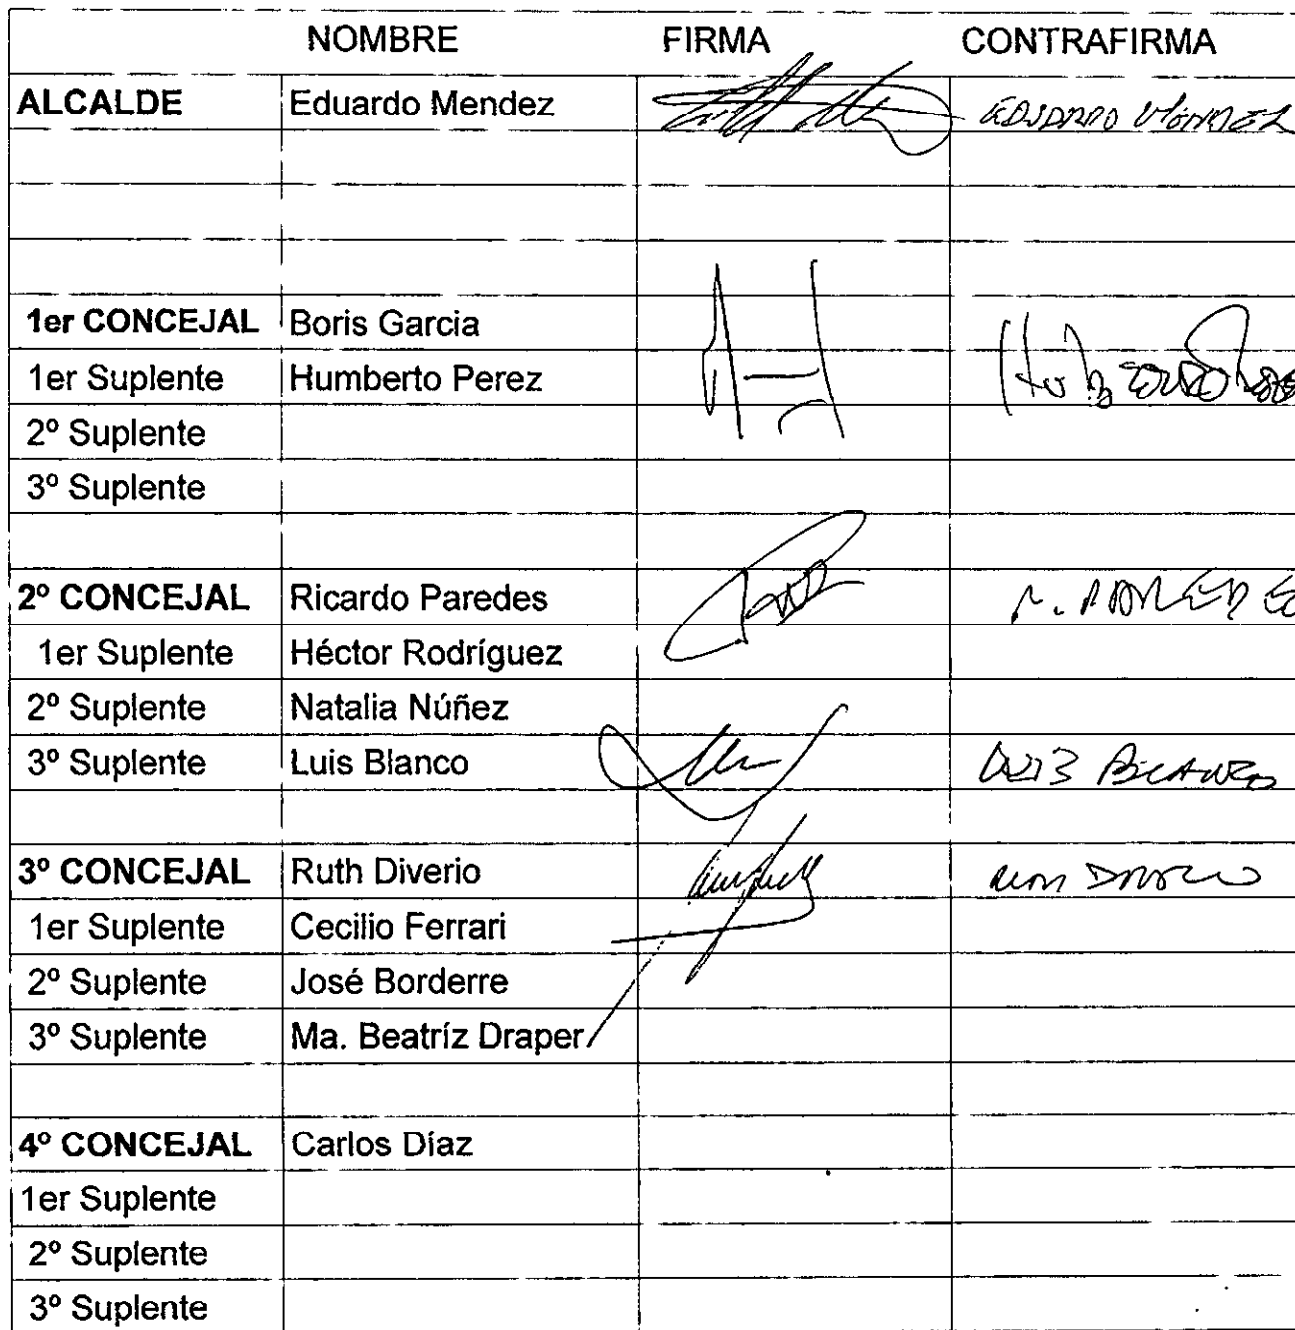 NOMBRE FIRMA CONTRAFIRMA
ALCALDE Eduardo Mendez EDUARDO MENDEZ
1er CONCEJAL Boris Garcia
1er Suplente Humberto Perez
2º Suplente
3º Suplente
2º CONCEJAL Ricardo Paredes R. PAREDES
1er Suplente Héctor Rodríguez
2º Suplente Natalia Núñez
3º Suplente Luis Blanco LUIS BLANCO
3º CONCEJAL Ruth Diverio
1er Suplente Cecilio Ferrari
2º Suplente José Borderre
3º Suplente Ma. Beatríz Draper
4º CONCEJAL Carlos Díaz
1er Suplente
2º Suplente
3º Suplente